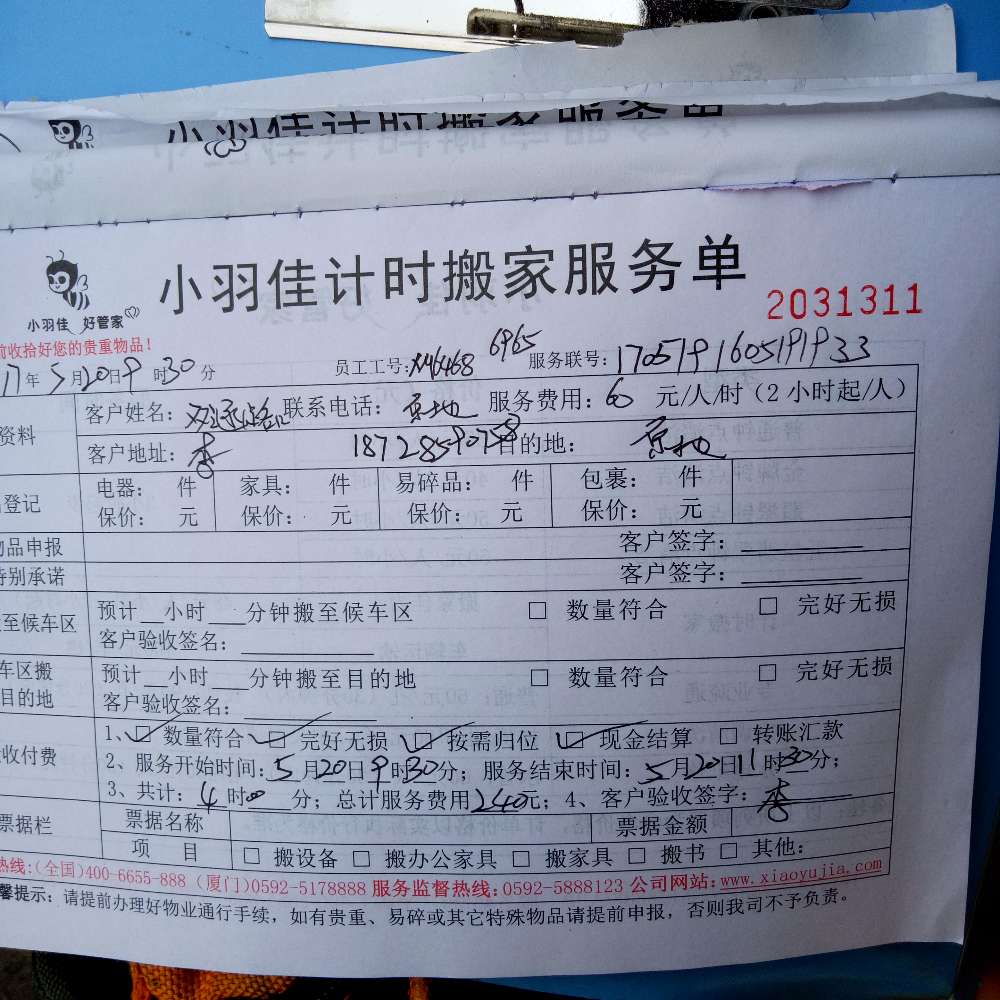 小羽佳计时搬家服务单
小羽佳计时搬家服务单
2031311
小羽佳 好管家
前收拾好您的贵重物品！
17年5月20日9时30分 员工工号： 6468 6965 服务联号：1705191605191933
客户姓名： 联系电话：原地 服务费用：60 元/人/时（2小时起/人）
资料
客户地址：李 18728590758 目的地：原地
登记
电器： 件 家具： 件 易碎品： 件 包裹： 件
保价： 元 保价： 元 保价： 元 保价： 元
物品申报 客户签字：
特别承诺 客户签字：
至候车区 预计__小时__分钟搬至候车区 □ 数量符合 □ 完好无损
客户验收签名：
车区搬 预计__小时__分钟搬至目的地 □ 数量符合 □ 完好无损
目的地 客户验收签名：
收付费
1、☑ 数量符合 ☑ 完好无损 ☑ 按需归位 ☑ 现金结算 □ 转账汇款
2、服务开始时间：5月20日9时30分；服务结束时间：5月20日11时30分；
3、共计：4时00分；总计服务费用240元；4、客户验收签字：李
票据栏 票据名称 票据金额
项 目 □ 搬设备 □ 搬办公家具 □ 搬家具 □ 搬书 □ 其他：
热线:(全国)400-6655-888 (厦门)0592-5178888 服务监督热线:0592-5888123 公司网站:www.xiaoyujia.com
馨提示：请提前办理好物业通行手续，如有贵重、易碎或其它特殊物品请提前申报，否则我司不予负责。